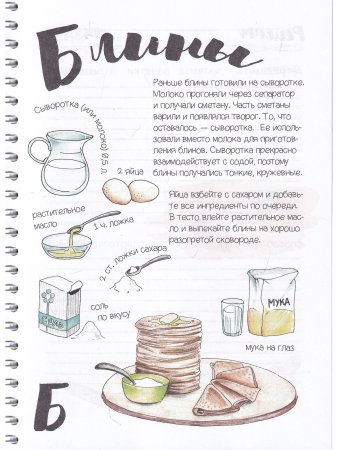 Блины
Раньше блины готовили на сыворотке.
Молоко прогоняли через сепаратор
и получали сметану. Часть сметаны
варили и появлялся творог. То, что
оставалось — сыворотка. Ее исполь-
зовали вместо молока для приготов-
ления блинов. Сыворотка прекрасно
взаимодействует с содой, поэтому
блины получались тонкие, кружевные.
Сыворотка (или молоко) 0,5 л
2 яйца
Яйца взбейте с сахаром и добавь-
те все ингредиенты по очереди.
В тесто влейте растительное мас-
ло и выпекайте блины на хорошо
разогретой сковороде.
растительное
масло
1 ч. ложка
2 ст. ложки сахара
соль
по вкусу
МУКА
мука на глаз
Б